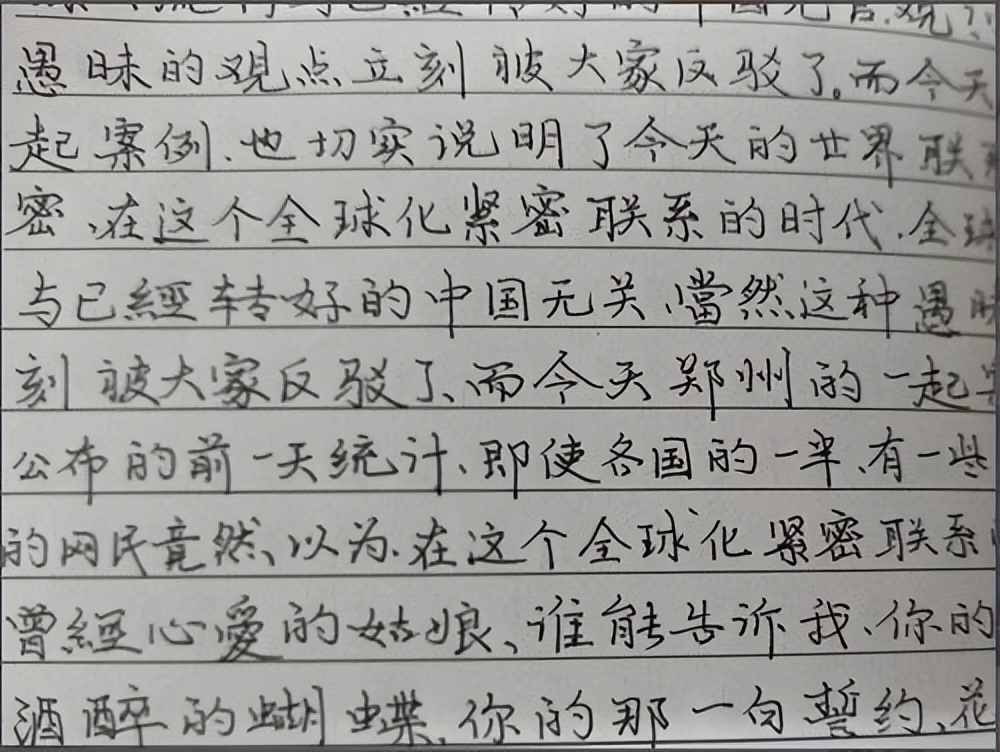 愚昧的观点立刻被大家反驳了。而今天
起案例、也切实说明了今天的世界联
密、在这个全球化紧密联系的时代、全球
与已經转好的中国无关、當然这种愚昧
刻被大家反驳了、而今天郑州的一起
公布的前一天统计、即使各国的一半、有一些
的网民竟然、以为、在这个全球化紧密联系
曾經心愛的姑娘、谁能告诉我、你的
酒醉的蝴蝶、你的那一句誓约、花